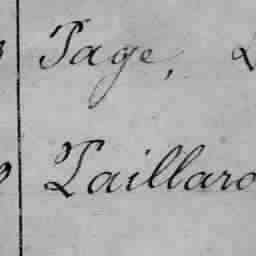 Page, L
Paillard